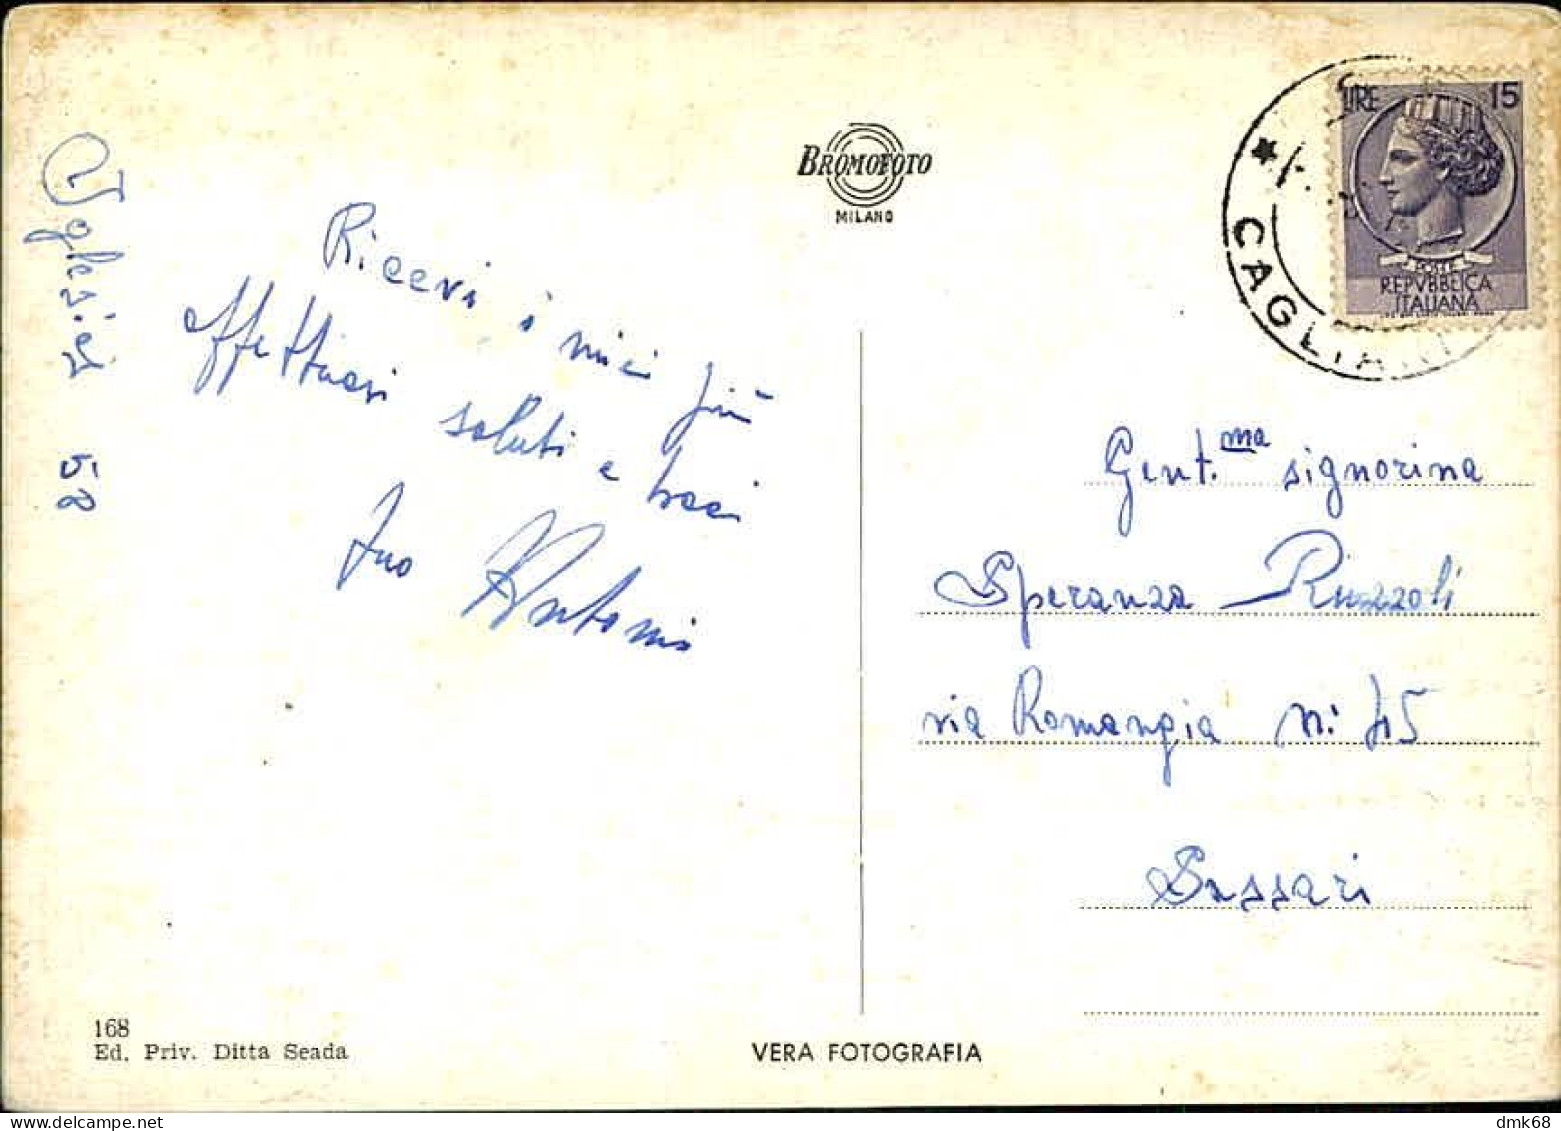 Vglesias 58
Ricevi i miei più
affettuosi saluti e baci
tuo Antonio
BROMOFOTO
MILANO
LIRE 15
POSTE
REPVBBLICA
ITALIANA
CAGLIARI
Gent.ma signorina
Speranza Ruzzoli
via Romangia n: 45
Sassari
168
Ed. Priv. Ditta Seada
VERA FOTOGRAFIA
dmk68